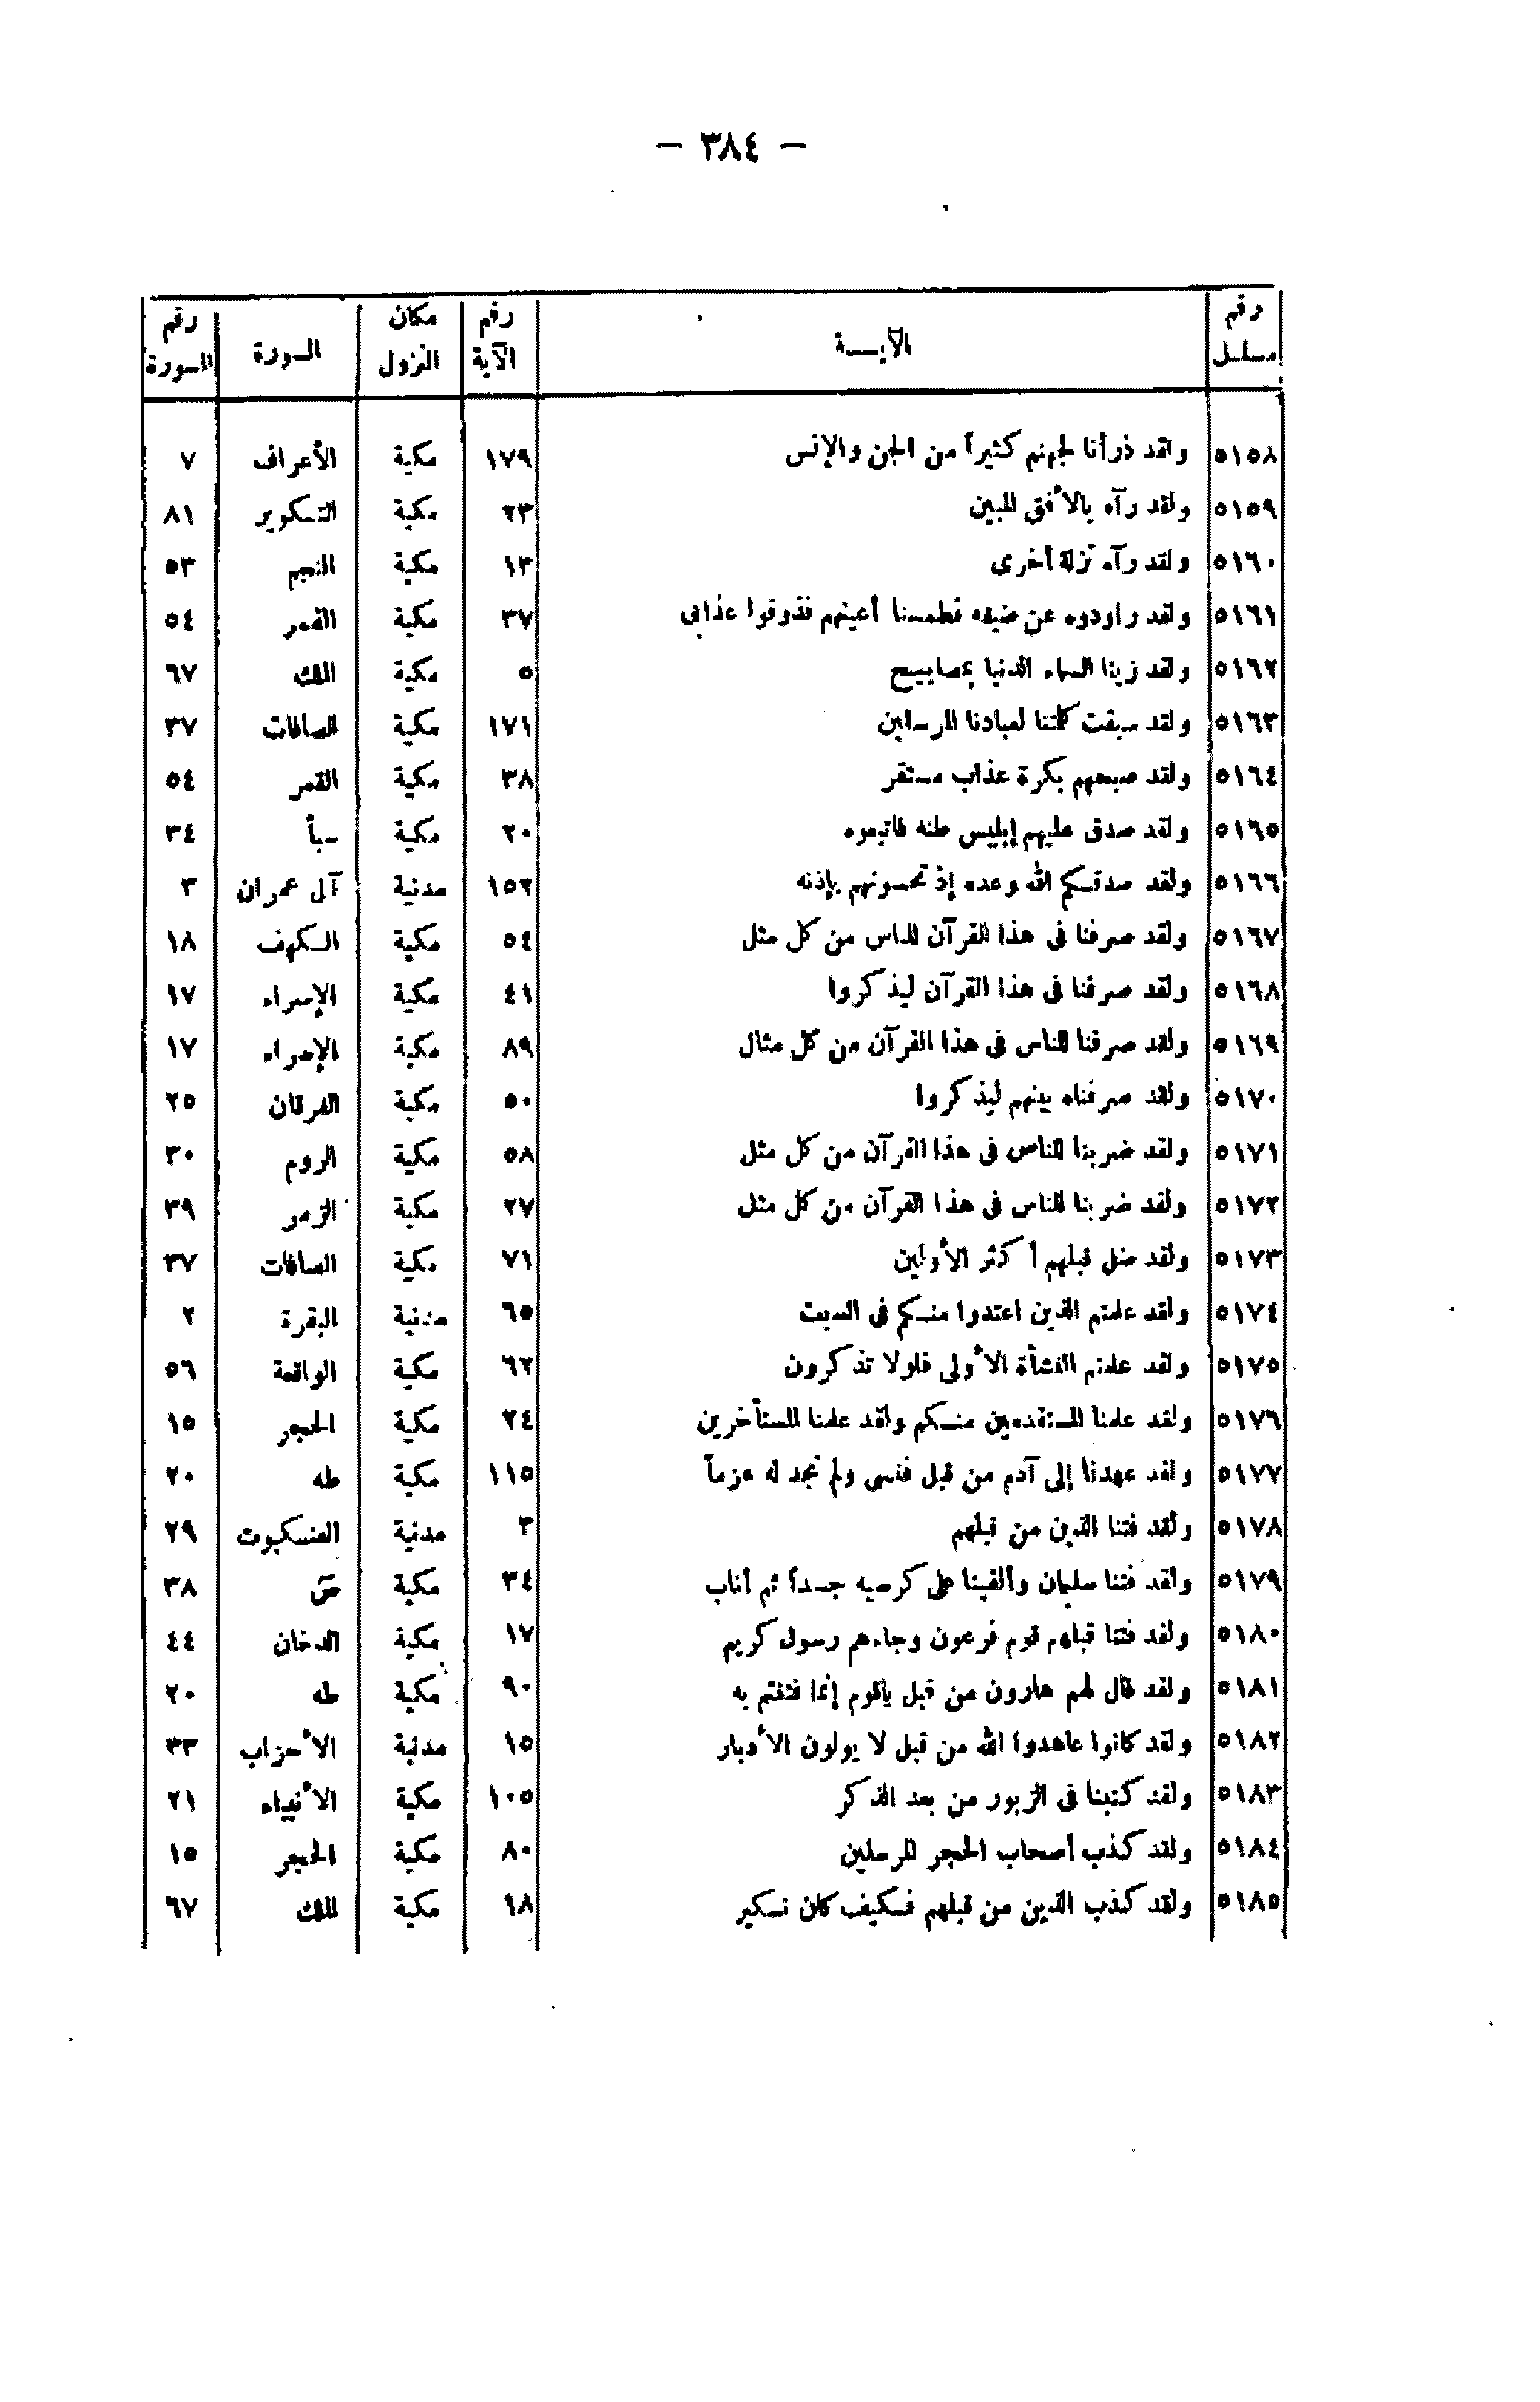 — ٣٨٤ —
رقم مسلسل | الآيـــة | رقم الآية | مكان النزول | السورة | رقم السورة
٥١٥٨ | ولقد ذرأنا لجهنم كثيراً من الجن والإنس | ١٧٩ | مكية | الأعراف | ٧
٥١٥٩ | ولقد رآه بالأفق المبين | ٢٣ | مكية | التكوير | ٨١
٥١٦٠ | ولقد رآه نزلة أخرى | ١٣ | مكية | النجم | ٥٣
٥١٦١ | ولقد راودوه عن ضيفه فطمسنا أعينهم فذوقوا عذابى | ٣٧ | مكية | القمر | ٥٤
٥١٦٢ | ولقد زينا السماء الدنيا بمصابيح | ٥ | مكية | الملك | ٦٧
٥١٦٣ | ولقد سبقت كلمتنا لعبادنا المرسلين | ١٧١ | مكية | الصافات | ٣٧
٥١٦٤ | ولقد صبحهم بكرة عذاب مستقر | ٣٨ | مكية | القمر | ٥٤
٥١٦٥ | ولقد صدق عليهم إبليس ظنه فاتبعوه | ٢٠ | مكية | سبأ | ٣٤
٥١٦٦ | ولقد صدقكم الله وعده إذ تحسونهم بإذنه | ١٥٢ | مدنية | آل عمران | ٣
٥١٦٧ | ولقد صرفنا فى هذا القرآن للناس من كل مثل | ٥٤ | مكية | الكهف | ١٨
٥١٦٨ | ولقد صرفنا فى هذا القرآن ليذكروا | ٤١ | مكية | الإسراء | ١٧
٥١٦٩ | ولقد صرفنا للناس فى هذا القرآن من كل مثال | ٨٩ | مكية | الإسراء | ١٧
٥١٧٠ | ولقد صرفناه بينهم ليذكروا | ٥٠ | مكية | الفرقان | ٢٥
٥١٧١ | ولقد ضربنا للناس فى هذا القرآن من كل مثل | ٥٨ | مكية | الروم | ٣٠
٥١٧٢ | ولقد ضربنا للناس فى هذا القرآن من كل مثل | ٢٧ | مكية | الزمر | ٣٩
٥١٧٣ | ولقد ضل قبلهم أكثر الأولين | ٧١ | مكية | الصافات | ٣٧
٥١٧٤ | ولقد علمتم الذين اعتدوا منكم فى السبت | ٦٥ | مدنية | البقرة | ٢
٥١٧٥ | ولقد علمتم النشأة الأولى فلولا تذكرون | ٦٢ | مكية | الواقعة | ٥٦
٥١٧٦ | ولقد علمنا المستقدمين منكم ولقد علمنا المستأخرين | ٢٤ | مكية | الحجر | ١٥
٥١٧٧ | ولقد عهدنا إلى آدم من قبل فنسى ولم نجد له عزماً | ١١٥ | مكية | طه | ٢٠
٥١٧٨ | ولقد فتنا الذين من قبلهم | ٣ | مدنية | العنكبوت | ٢٩
٥١٧٩ | ولقد فتنا سليمان وألقينا على كرسيه جسداً ثم أناب | ٣٤ | مكية | صٓ | ٣٨
٥١٨٠ | ولقد فتنا قبلهم قوم فرعون وجاءهم رسول كريم | ١٧ | مكية | الدخان | ٤٤
٥١٨١ | ولقد قال لهم هارون من قبل ياقوم إنما فتنتم به | ٩٠ | مكية | طه | ٢٠
٥١٨٢ | ولقد كانوا عاهدوا الله من قبل لا يولون الأدبار | ١٥ | مدنية | الأحزاب | ٣٣
٥١٨٣ | ولقد كتبنا فى الزبور من بعد الذكر | ١٠٥ | مكية | الأنبياء | ٢١
٥١٨٤ | ولقد كذب أصحاب الحجر المرسلين | ٨٠ | مكية | الحجر | ١٥
٥١٨٥ | ولقد كذب الذين من قبلهم فكيف كان نكير | ١٨ | مكية | الملك | ٦٧